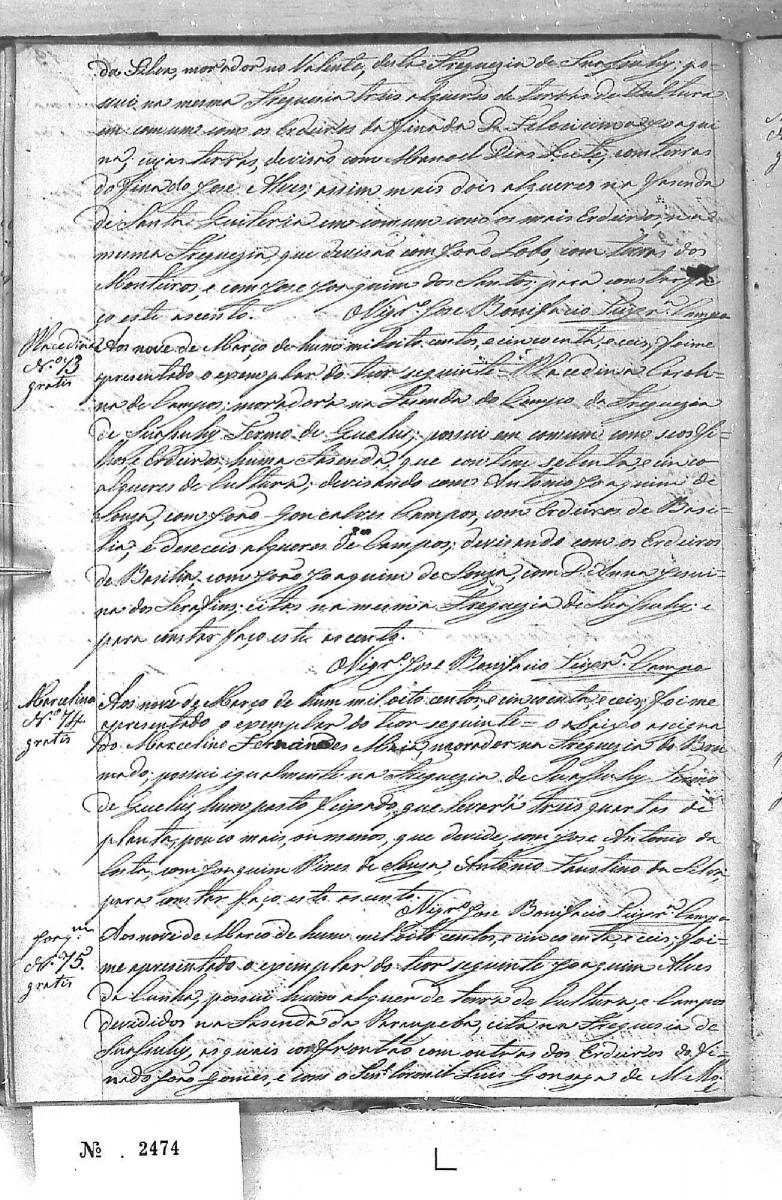 da Silva, morador no Valente, desta Freguezia de Suassuhy: po-
sui na mesma Freguezia tres alqueres de terras de Cultura
em comum com os Erdeiros da finada D. Felicicima Joaqui
na; cujas terras, devisão com Manoel Dias Leite, com terras
do finado Jose Alves; assim mais dois alqueres na Fasenda
de Santa Quiteria em comum com os mais Erdeiros, na
mesma Freguezia que devisão com João Lobo, com terras dos
Monteiros, e com Jose Joaquim dos Santos, para constar fa-
ço este acento. O Vigr.o Jose Bonifacio Campo
Placedina
N.o 73
gratis
Aos nove de Março de hum mil oito centos, e cincoenta, e ceis, foi me
apresentado o exemplar do tior seguinte = Placedina Caroli-
na de Campos; moradora na Fasenda do Campo da Freguezia
de Suassuhy Termo de Queluz; posui em comum com seos fi-
lhos e Erdeiros; huma Fasenda, que contem setenta, e cinco
alqueres de Cultura; devisando com Antonio Joaquim de
Souza, com João Goncalves Campos, com Erdeiros de Basi-
lia; e deseceis alqueres de Campos; devisando com os Erdeiros
de Basilia com João Joaquim de Souza, com D. Anna
na dos Serafins: citas na mesma Freguezia de Suassuhy: e
para constar faço este acento.
O Vigr.o Jose Bonifacio Campo
Marcelino
N.o 74
gratis
Aos nove de Março de hum mil oito centos, e cincoenta, e ceis, foi me
apresentado o exemplar do tior seguinte = o abaixo acigna
do Marcelino Fernandes Maia, morador na Freguezia do Bru
mado; possui igualmente na Freguezia de Suassuhy Termo
de Queluz, hum pasto feixado, que levará tres quartas de
planta, pouco mais, ou menos, que devide, com Jose Antonio da
Costa, com Joaquim Pires de Souza, Antônio Faustino da Silva,
para constar faço este acento. O Vigr.o Jose Bonifacio Campo
Joaq.m
N.o 75.
gratis
Aos nove de Março de hum mil oito centos, e cincoenta, e ceis, foi-
me apresentado o exemplar do tior seguinte Joaquim Alves
da Cunha, possui hum alquer de terra de Cultura, e Campos
devididos na Fasenda da Paraupeba, cita na Freguesia de
Suassuhy, as quais confrontão com outras dos Erdeiros do fi-
nado João Gomes, e com o Coronel Luis Gonzaga de Mello
N.o . 2474